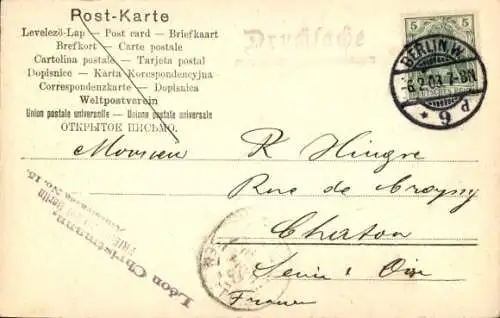 Post-Karte
Levelező-Lap — Post card — Briefkaart
Brefkort — Carte postale
Cartolina postale — Tarjeta postal
Dopisnice — Karta Korespondencyjna
Correspondenzkarte — Dopisnica
Weltpostverein
Union postale universelle — Unione postale universale
ОТКРЫТОЕ ПИСЬМО.
Drucksache
5 5
BERLIN.W.
6.2.03.7-8N
* 9 d
Monsieur R Hingre
Rue de Croissy
Chatou
Seine & Oise
France
Léon Christmann
Berlin
No. 15.